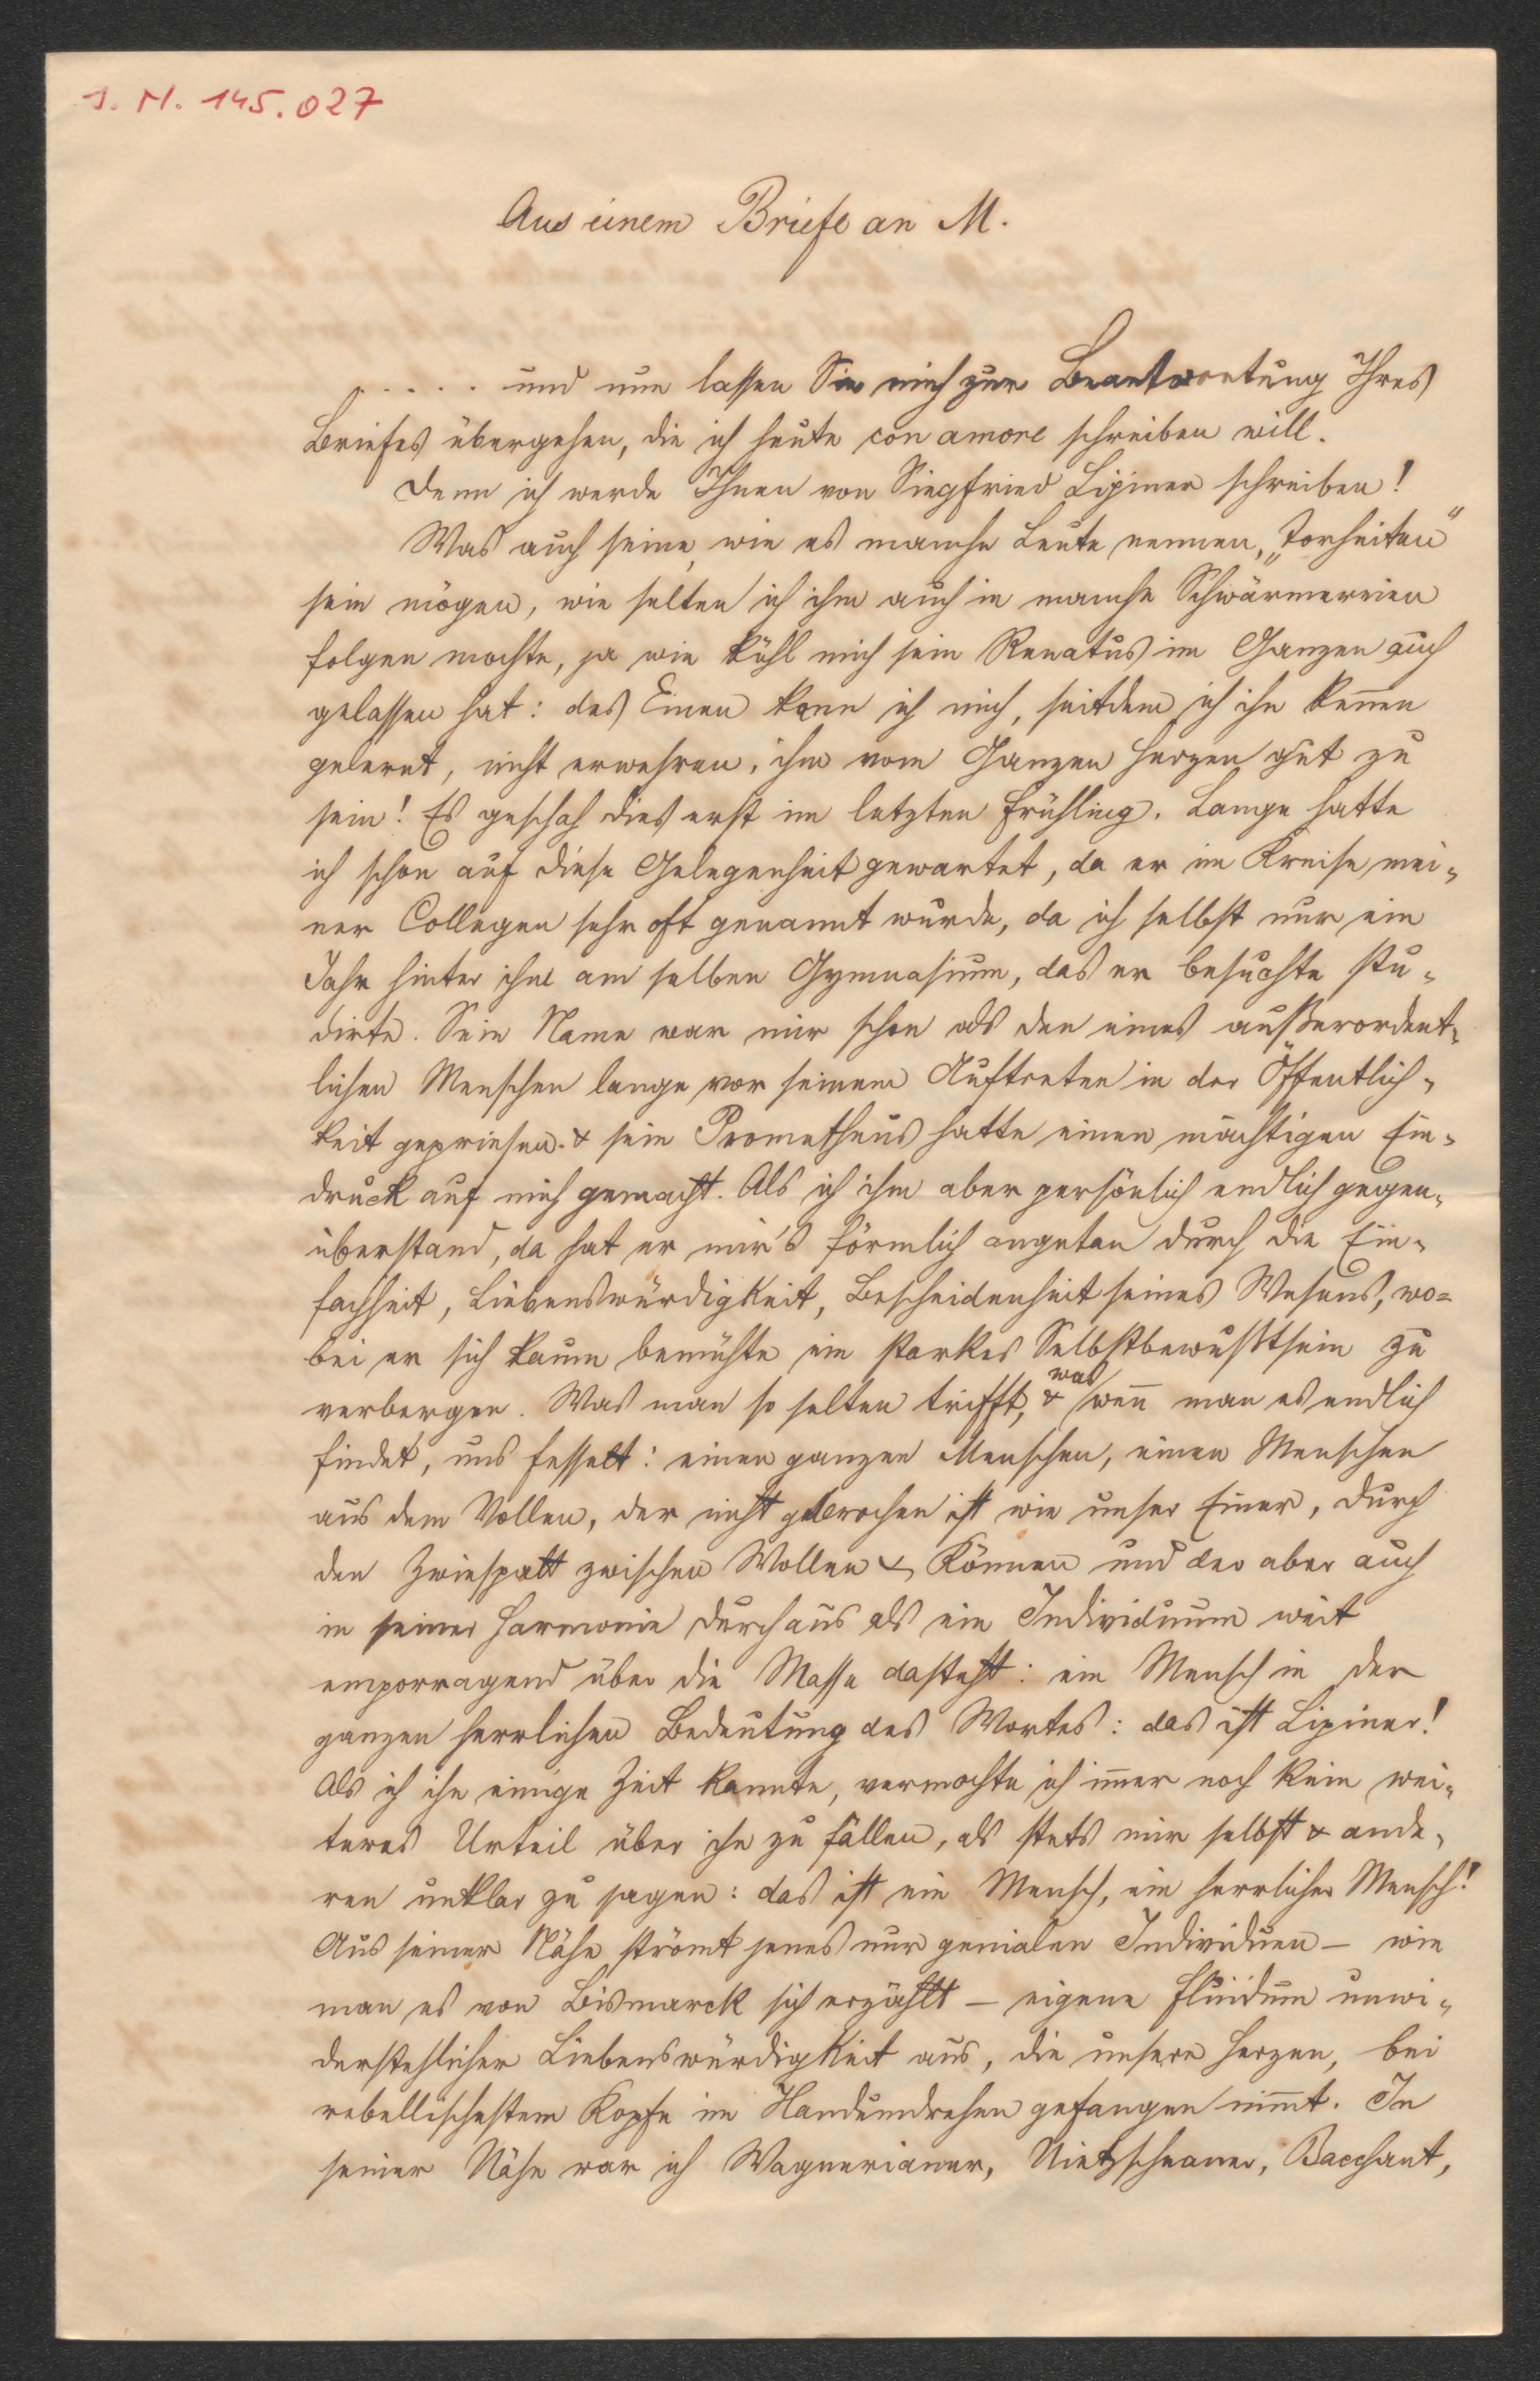 J. N. 145.027
Aus einem Briefe an M.
. . . . . und nun lassen Sie mich zur Beantwortung Ihres
Briefes übergehen, die ich heute con amore schreiben will.
Denn ich werde Ihnen von Siegfried Lipiner schreiben!
Was auch seine, wie es manche Leute nennen, „Torheiten“
sein mögen, wie selten ich ihm auch in manche Schwärmereien
folgen mochte, ja wie kühl mich sein Renatus im Ganzen auch
gelassen hat: des Einen kann ich mich, seitdem ich ihn kennen
gelernt, nicht erwehren, ihm vom Ganzen Herzen gut zu
sein! Es geschah dies erst im letzten Frühling. Lange hatte
ich schon auf diese Gelegenheit gewartet, da er im Kreise mei-
ner Collegen sehr oft genannt wurde, da ich selbst nur ein
Jahr hinter ihm am selben Gymnasium, das er besuchte stu-
dirte. Sein Name war mir schon als den eines außerordent-
lichen Menschen lange vor seinem Auftreten in der Öffentlich-
keit gepriesen. & sein Prometheus hatte einen mächtigen Ein-
druck auf mich gemacht. Als ich ihm aber persönlich endlich gegen-
überstand, da hat er mir's förmlich angetan durch die Ein-
fachheit, Liebenswürdigkeit, Bescheidenheit seines Wesens, wo-
bei er sich kaum bemühte ein starkes Selbstbewußtsein zu
verbergen. Was man so selten trifft, & was wen̄ man es endlich
findet, uns fesselt: einen ganzen Menschen, einen Menschen
aus dem Vollen, der nicht gebrochen ist wie unser Einer, durch
den Zwiespalt zwischen Wollen & Können und der aber auch
in seiner Harmonie durchaus als ein Individuum weit
emporragend über die Masse dasteht: ein Mensch in der
ganzen herrlichen Bedeutung des Wortes: das ist Lipiner!
Als ich ihn einige Zeit kannte, vermochte ich im̄er noch kein wei-
teres Urteil über ihn zu fällen, als stets mir selbst & ande-
ren unklar zu sagen: das ist ein Mensch, ein herrlicher Mensch!
Aus seiner Nähe strömt jenes nur genialen Individuen – wie
man es von Bismarck sich erzählt – eigene Fluidum unwi-
derstehlicher Liebenswürdigkeit aus, die unsere Herzen, bei
rebellischestem Kopfe im Handumdrehen gefangen nim̄t. In
seiner Nähe war ich Wagnerianer, Nietzscheaner, Bacchant,